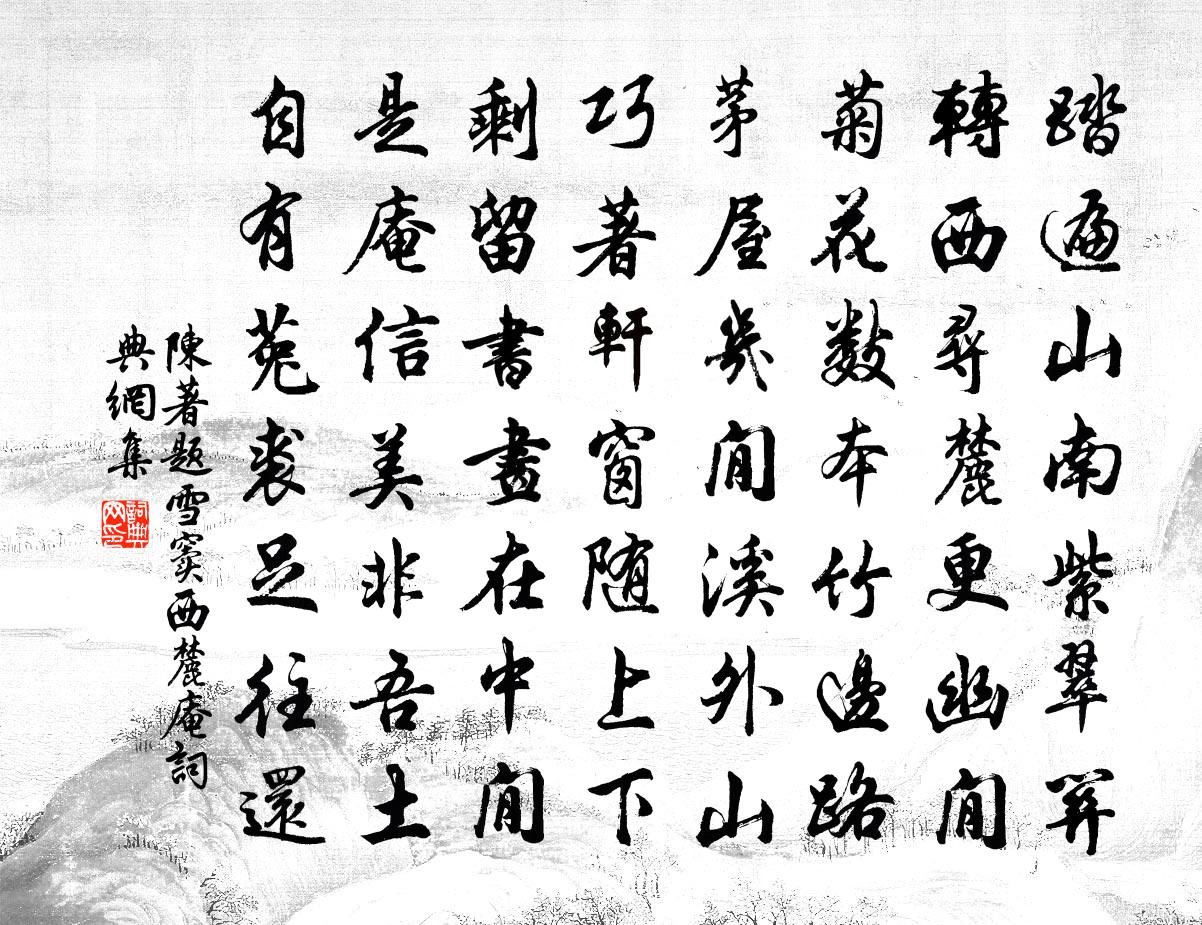 踏遍山南紫翠關
轉西尋麓更幽閒
菊花數本竹邊路
茅屋幾閒溪外山
巧著軒窗随上下
剩留書畫在中閒
是庵信美非吾土
自有菟裘足往還
陳著題雪竇西麓庵詞
典網集
詞典
网印